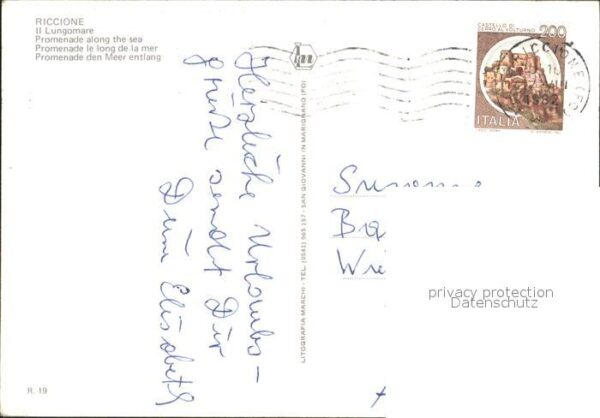 RICCIONE
Il Lungomare
Promenade along the sea
Promenade le long de la mer
Promenade den Meer entlang
CASTELLO DI
CERRO AL VOLTURNO
200
ITALIA
RICCIONE (FO)
Herzliche Urlaubs-
grüße sendet Dir
Deine Elisabeth
LITOGRAFIA MARCHI - TEL. (0541) 965 157 - SAN GIOVANNI IN MARIGNANO (FO)
privacy protection
Datenschutz
R. 19